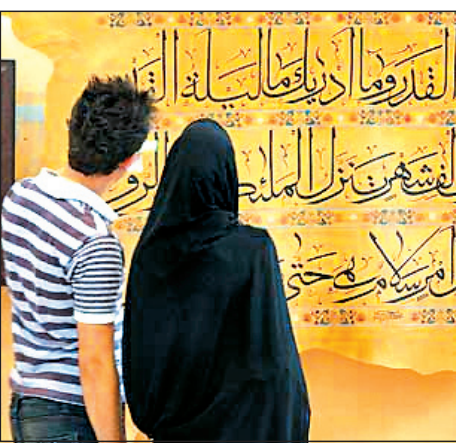 القدر وما ادريك ما ليلة القد
لف شهر تنزل الملئك الرو
ل امر سلام هى حتى